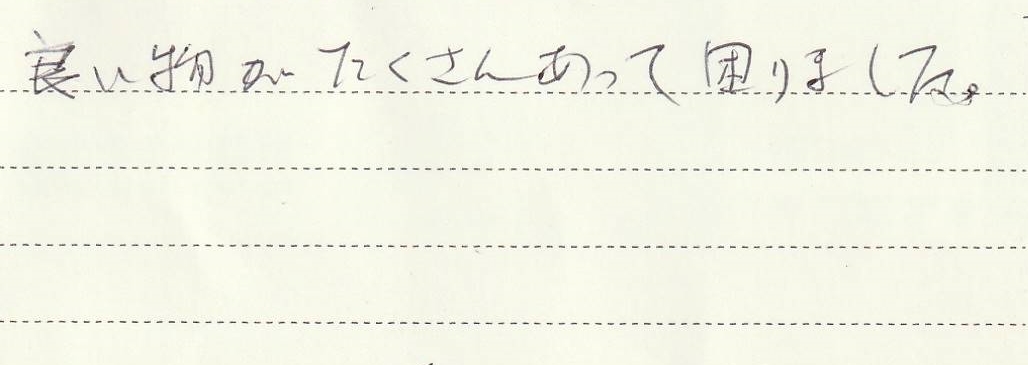 良い物がたくさんあって困りました。